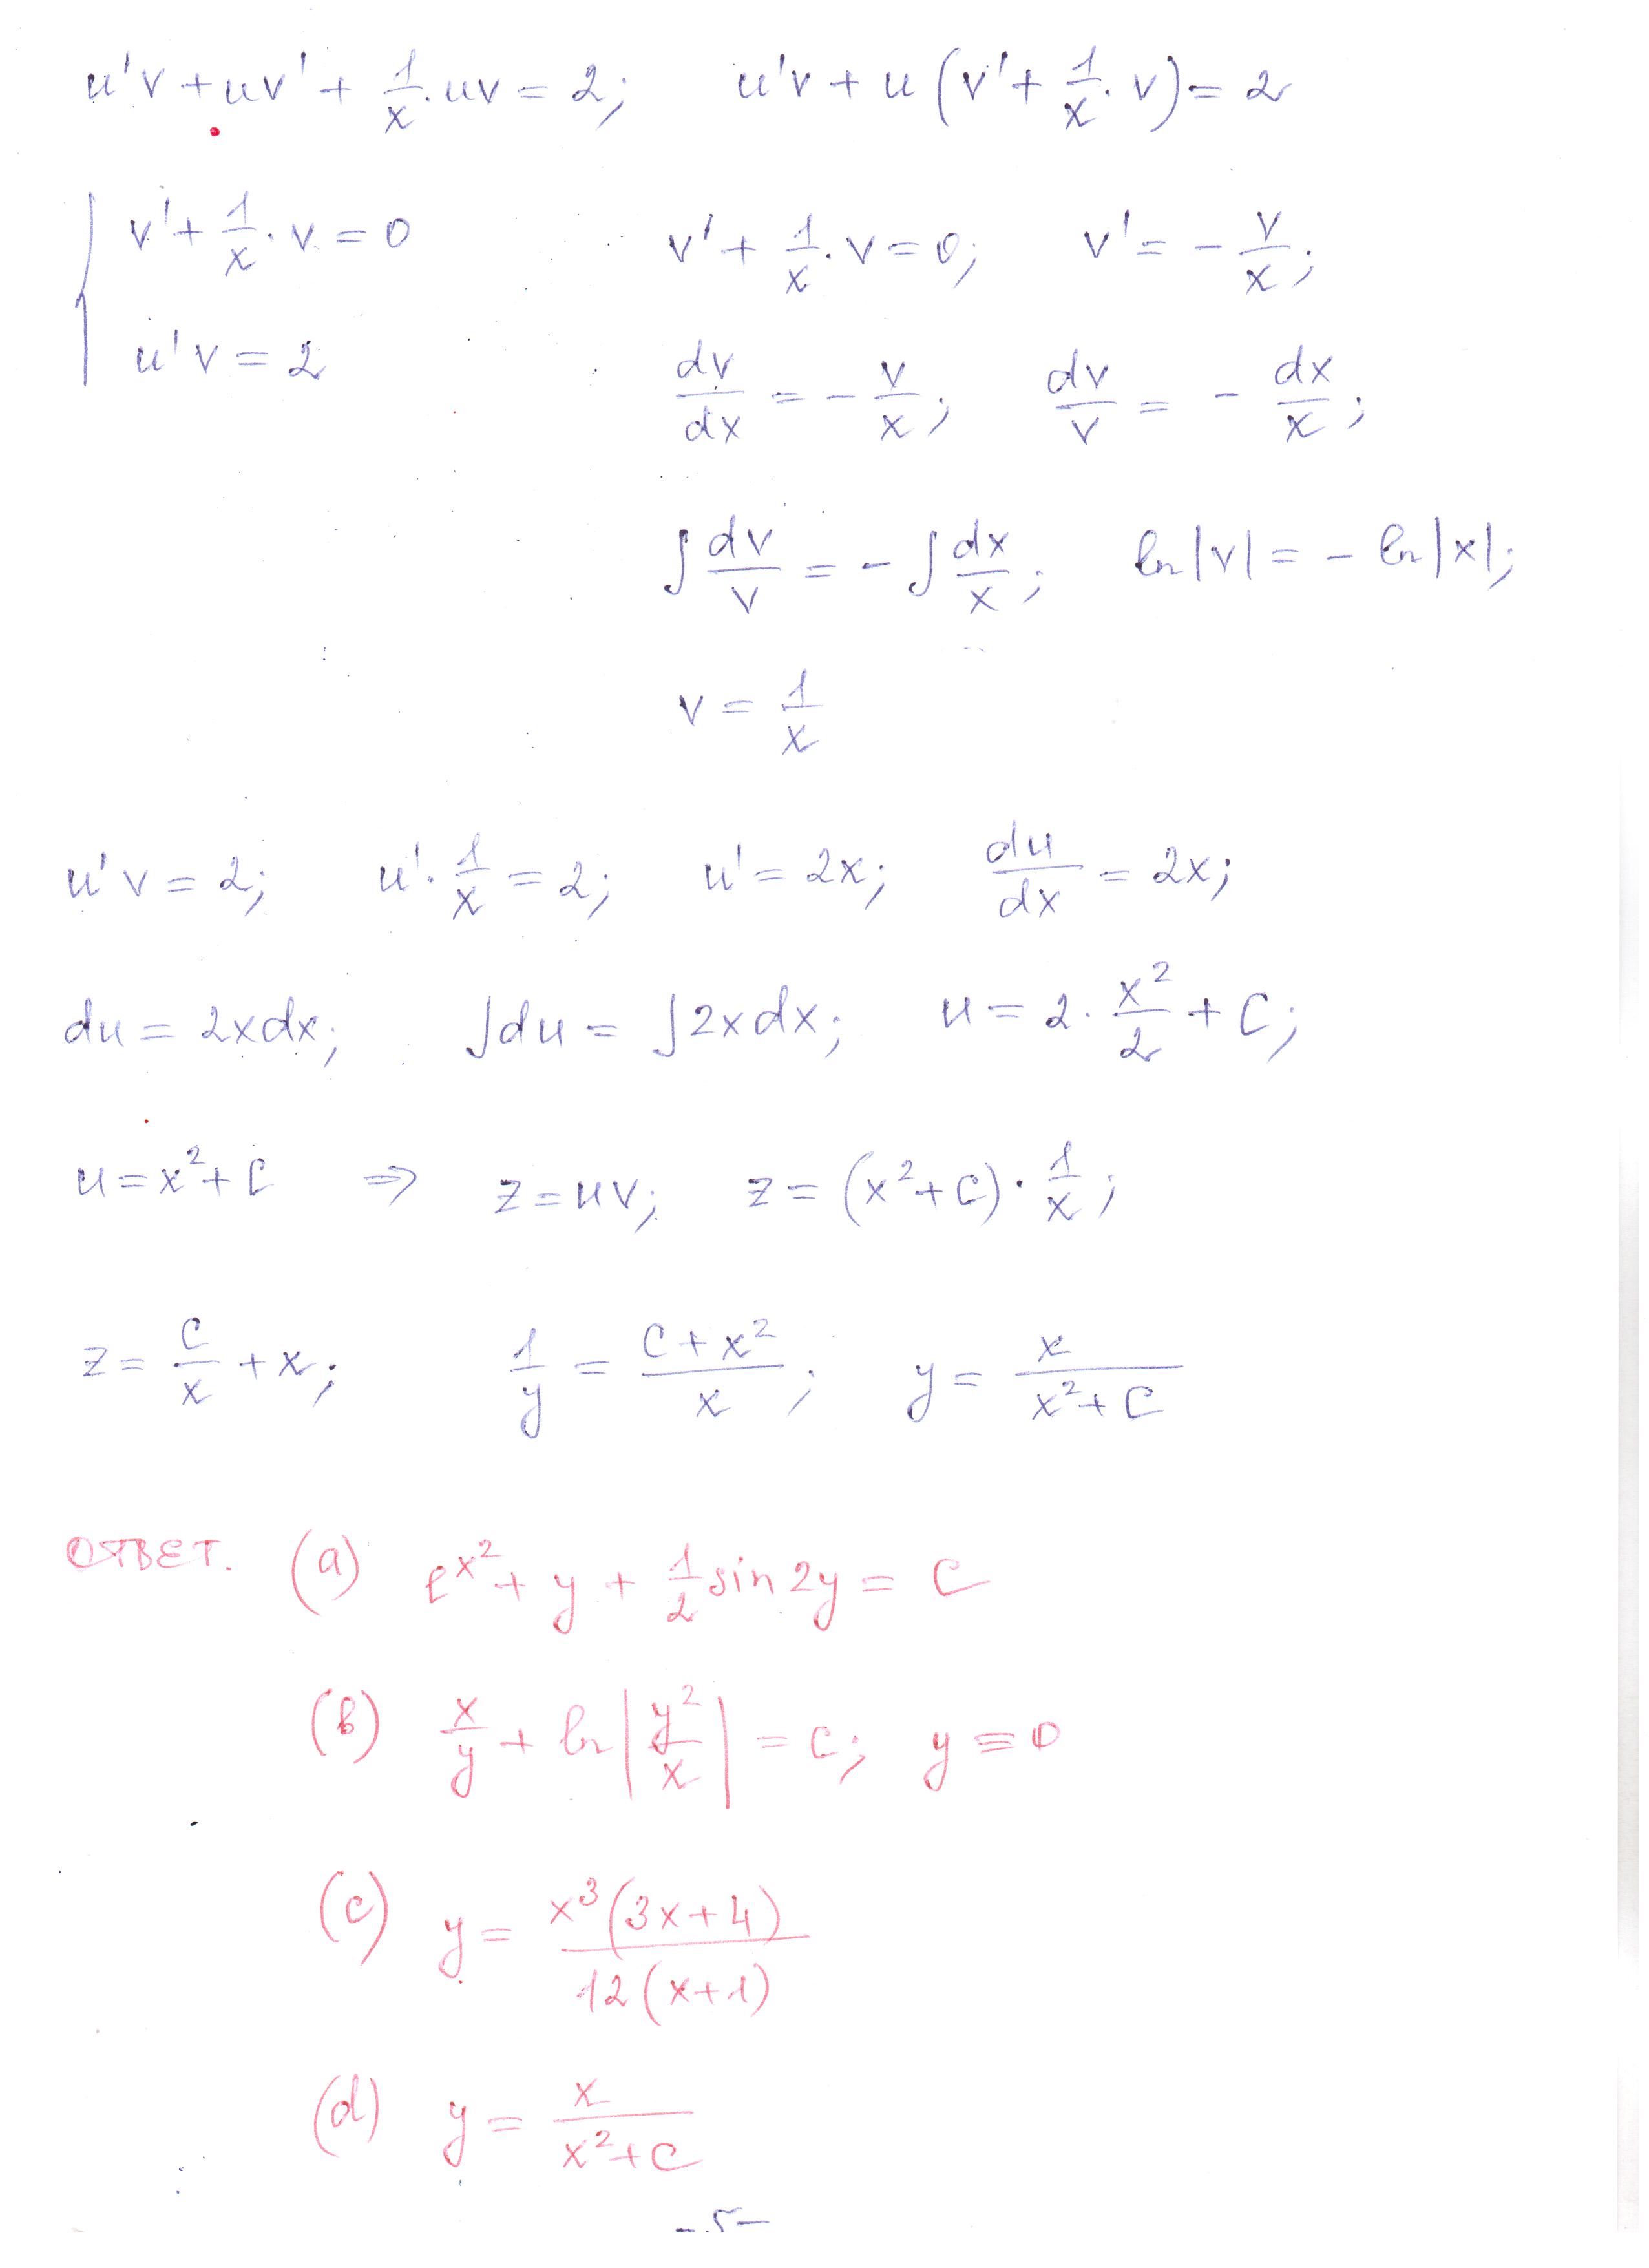 u'v + uv' + 1/x · uv = 2; u'v + u (v' + 1/x · v) = 2
{ v' + 1/x · v = 0 v' + 1/x · v = 0; v' = - v/x;
u'v = 2 dv/dx = - v/x; dv/v = - dx/x;
∫ dv/v = - ∫ dx/x; ln|v| = - ln|x|;
v = 1/x
u'v = 2; u' · 1/x = 2; u' = 2x; du/dx = 2x;
du = 2xdx; ∫du = ∫2xdx; u = 2 · x²/2 + C;
u = x² + C ⇒ z = uv; z = (x² + C) · 1/x;
z = C/x + x; 1/y = (C + x²)/x; y = x/(x² + C)
ОТВЕТ. (a) e^(x²) + y + 1/2 sin 2y = C
(b) x/y + ln |y²/x| = C; y ≡ 0
(c) y = x³(3x+4)/(12(x+1))
(d) y = x/(x² + C)
- 5 -